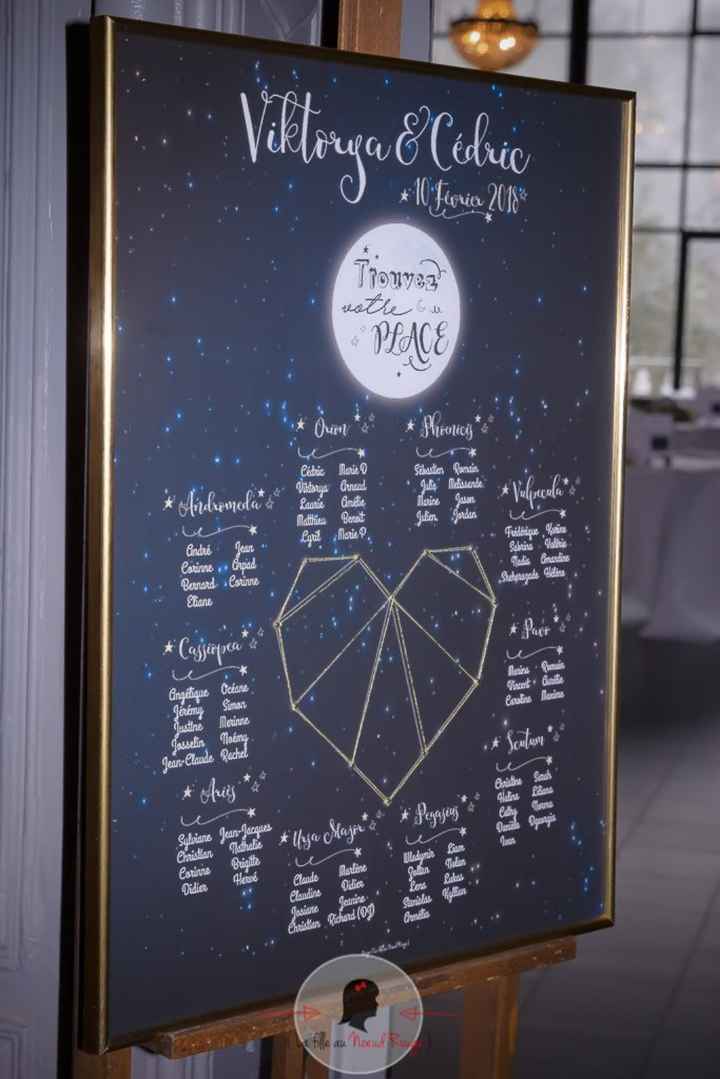 Viktorya & Cédric
10 Février 2018
Trouvez
votre
PLACE
Orion
Cédric Marie D
Viktorya Arnaud
Laurie Amélie
Matthieu Benoit
Cyril Marie P
Phoenicis
Sébastien Romain
Julie Melissende
Marine Jason
Julien Jordan
Andromeda
André Jean
Corinne Arpad
Bernard Corinne
Eliane
Vulpecula
Frédérique Karine
Sabrina Valérie
Nadia Amandine
Sheherazade Hélène
Cassiopea
Angélique Océane
Jérémy Simon
Justine Merinne
Josselin Noémy
Jean-Claude Rachel
Pavo
Marina Romain
Vincent Aurélie
Caroline Maxime
Ariès
Sylviane Jean-Jacques
Christian Nathalie
Corinne Brigitte
Didier Hervé
Scutum
Christine Sarah
Halina Liliana
Cathy Norma
Danièla Georgia
Ursa Major
Claude Marlène
Claudine Didier
Josiane Jeanine
Christian Richard (DJ)
Pegasus
Wladymir Liam
Julius Nolan
Lena Lukas
Stanislas Kyllian
Ornélia
La fille au Noeud Rouge